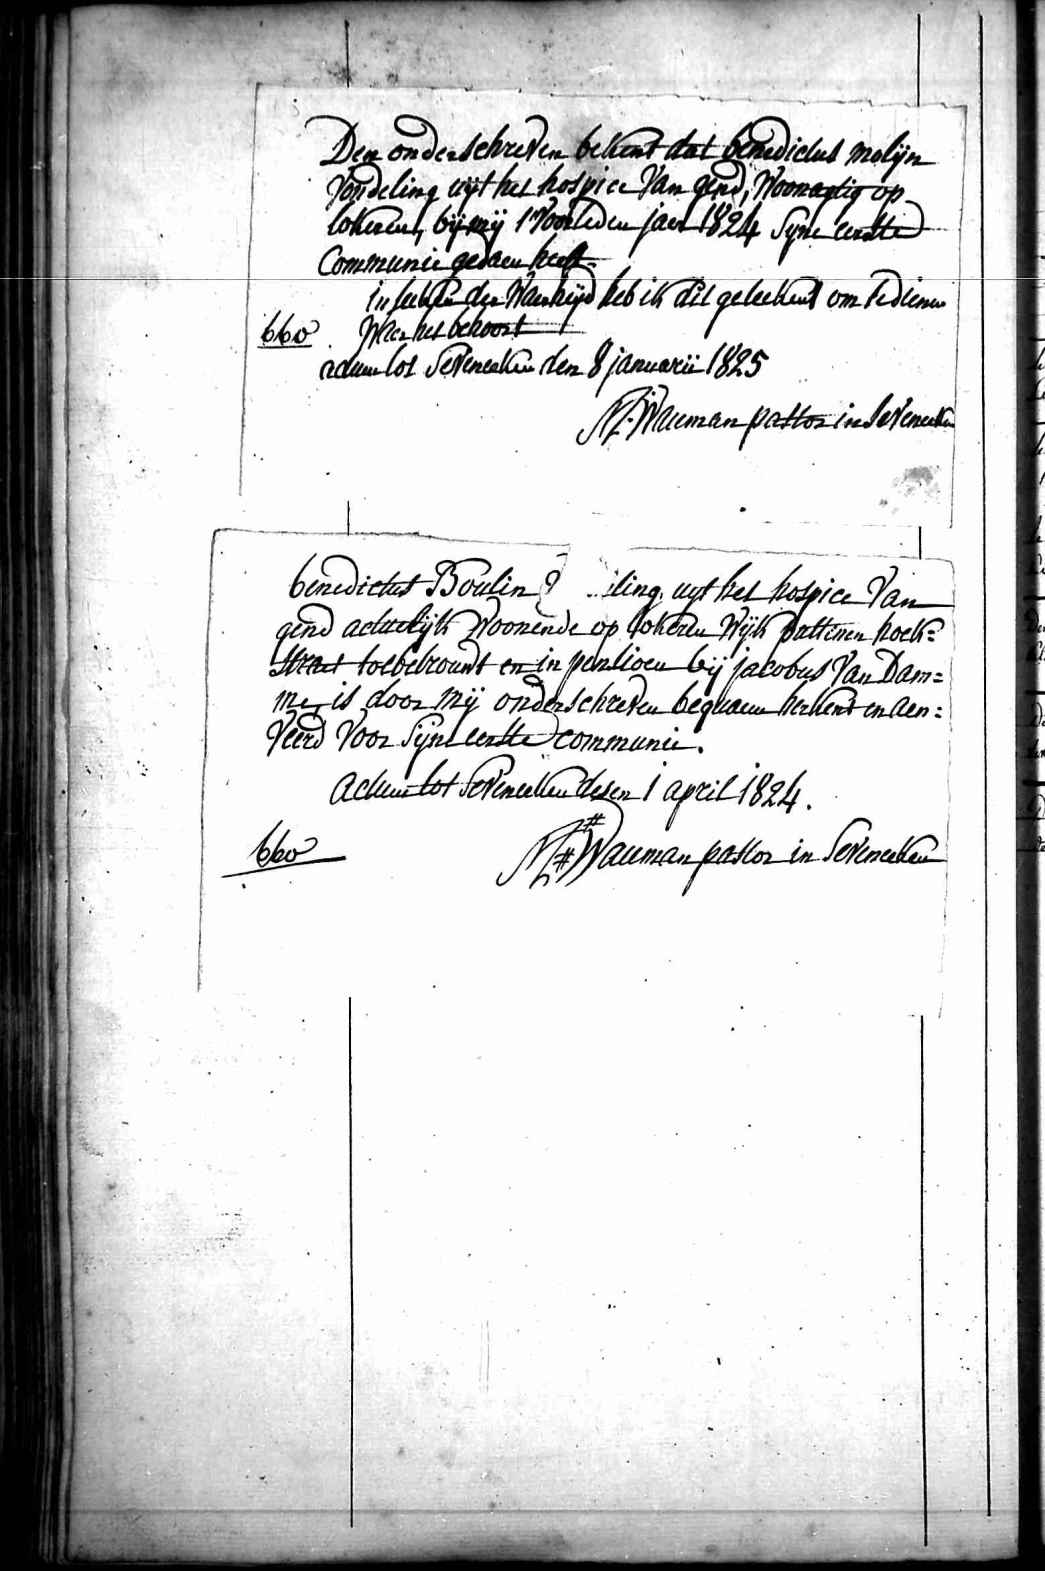 Den onderschreven bekent dat benedictus molijn
vondeling uijt het hospice van gend, woonagtig op
lokeren, bij mij 't voorleden jaer 1824 syne eerste
Communie gedaen heeft.
in teeken der Waerhijd heb ik dit geteekent om te dienen
660 waer het behoort
actum tot Seveneeken den 8 januarii 1825
Wauman pastor in Seveneeken
benedictus Boulin uyt het hospice van
gend actuelijk woonende op lokeren Wijk pattinen hoek=
straet toebetrouwt en in pentioen bij jacobus Van Dam=
me, is door mij onderschreven bequaem herkent en aen=
veerd voor syne eerste communie.
actum tot Seveneeken desen 1 april 1824.
660
Wauman pastor in Seveneeken